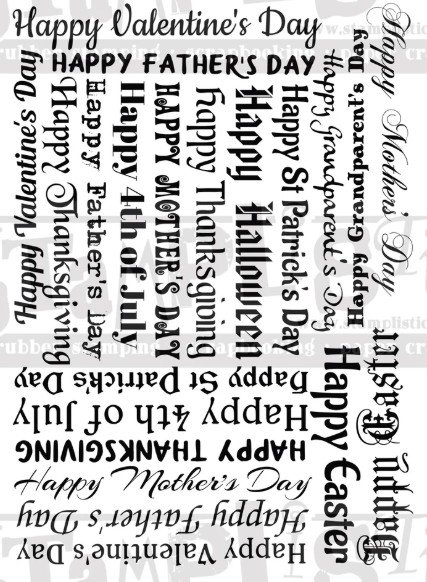 Happy Valentine's Day
HAPPY FATHER'S DAY
Happy Valentine's Day
Happy Thanksgiving
Happy Father's Day
Happy 4th of July
HAPPY MOTHER'S DAY
Happy Thanksgiving
Happy Halloween
Happy St Patrick's Day
Happy Grandparent's Day
Happy Grandparent's Day
Happy Mother's Day
Happy St Patrick's Day
Happy 4th of July
HAPPY THANKSGIVING
Happy Mother's Day
Happy Father's Day
Happy Valentine's Day
Happy Easter
Happy Easter